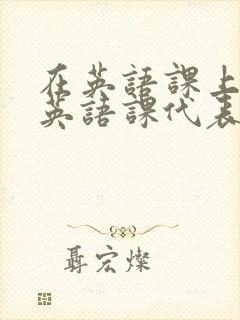 在英語課上
英語課代表
聶宏燦